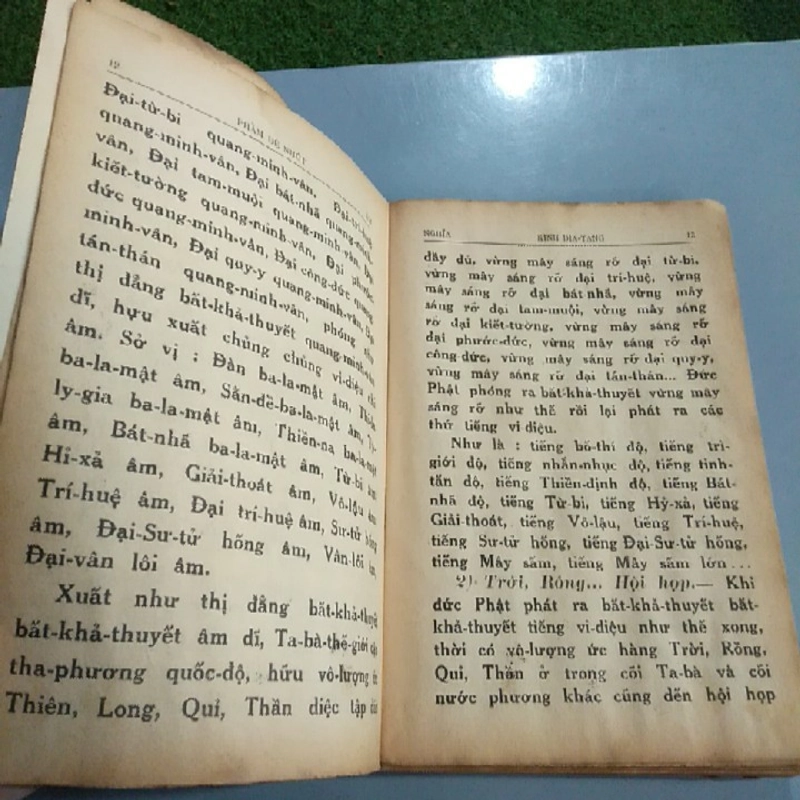 12
PHẨM ĐỆ NHỨT
Đại-từ-bi quang-minh-vân, Đại-trí-huệ
quang-minh-vân, Đại bát-nhã quang-minh-
vân, Đại tam-muội quang-minh-vân, Đại
kiết-tường quang-minh-vân, Đại phước-
đức quang-minh-vân, Đại công-đức quang-
minh-vân, Đại quy-y quang-minh-vân, Đại
tán-thán quang-minh-vân, phóng
thị đẳng bất-khả-thuyết quang-minh-vân
dĩ, hựu xuất chủng chủng vi-diệu chi
âm. Sở vị : Đàn ba-la-mật âm, Thi-la
ba-la-mật âm, Sằn-đề-ba-la-mật âm, Tỳ-
ly-gia ba-la-mật âm, Thiền-na ba-la-mật
âm, Bát-nhã ba-la-mật âm, Từ-bi âm
Hỉ-xả âm, Giải-thoát âm, Vô-lậu âm
Trí-huệ âm, Đại trí-huệ âm, Sư-tử hống
âm, Đại-Sư-tử hống âm, Vân-lôi âm,
Đại-vân lôi âm.
Xuất như thị đẳng bất-khả-thuyết
bất-khả-thuyết âm dĩ, Ta-bà-thế-giới cập
tha-phương quốc-độ, hữu vô-lượng ức
Thiên, Long, Quỉ, Thần diệc tập
NGHĨA KINH ĐỊA-TẠNG 13
đầy đủ, vừng mây sáng rỡ đại từ-bi,
vừng mây sáng rỡ đại trí-huệ, vừng
mây sáng rỡ đại bát-nhã, vừng mây
sáng rỡ đại tam-muội, vừng mây sáng
rỡ đại kiết-tường, vừng mây sáng rỡ
đại phước-đức, vừng mây sáng rỡ đại
công-đức, vừng mây sáng rỡ đại quy-y,
vừng mây sáng rỡ đại tán-thán... Đức
Phật phóng ra bất-khả-thuyết vừng mây
sáng rỡ như thế rồi lại phát ra các
thứ tiếng vi-diệu.
Như là : tiếng bố-thí độ, tiếng trì-
giới độ, tiếng nhẫn-nhục độ, tiếng tinh-
tấn độ, tiếng Thiền-định độ, tiếng Bát-
nhã độ, tiếng Từ-bi, tiếng Hỷ-xả, tiếng
Giải-thoát, tiếng Vô-lậu, tiếng Trí-huệ,
tiếng Sư-tử hống, tiếng Đại-Sư-tử hống,
tiếng Mây sấm, tiếng Mây sấm lớn...
2) Trời, Rồng... Hội họp.— Khi
đức Phật phát ra bất-khả-thuyết bất-
khả-thuyết tiếng vi-diệu như thế xong,
thời có vô-lượng ức hàng Trời, Rồng,
Quỉ, Thần ở trong cõi Ta-bà và cõi
nước phương khác cũng đến hội họp